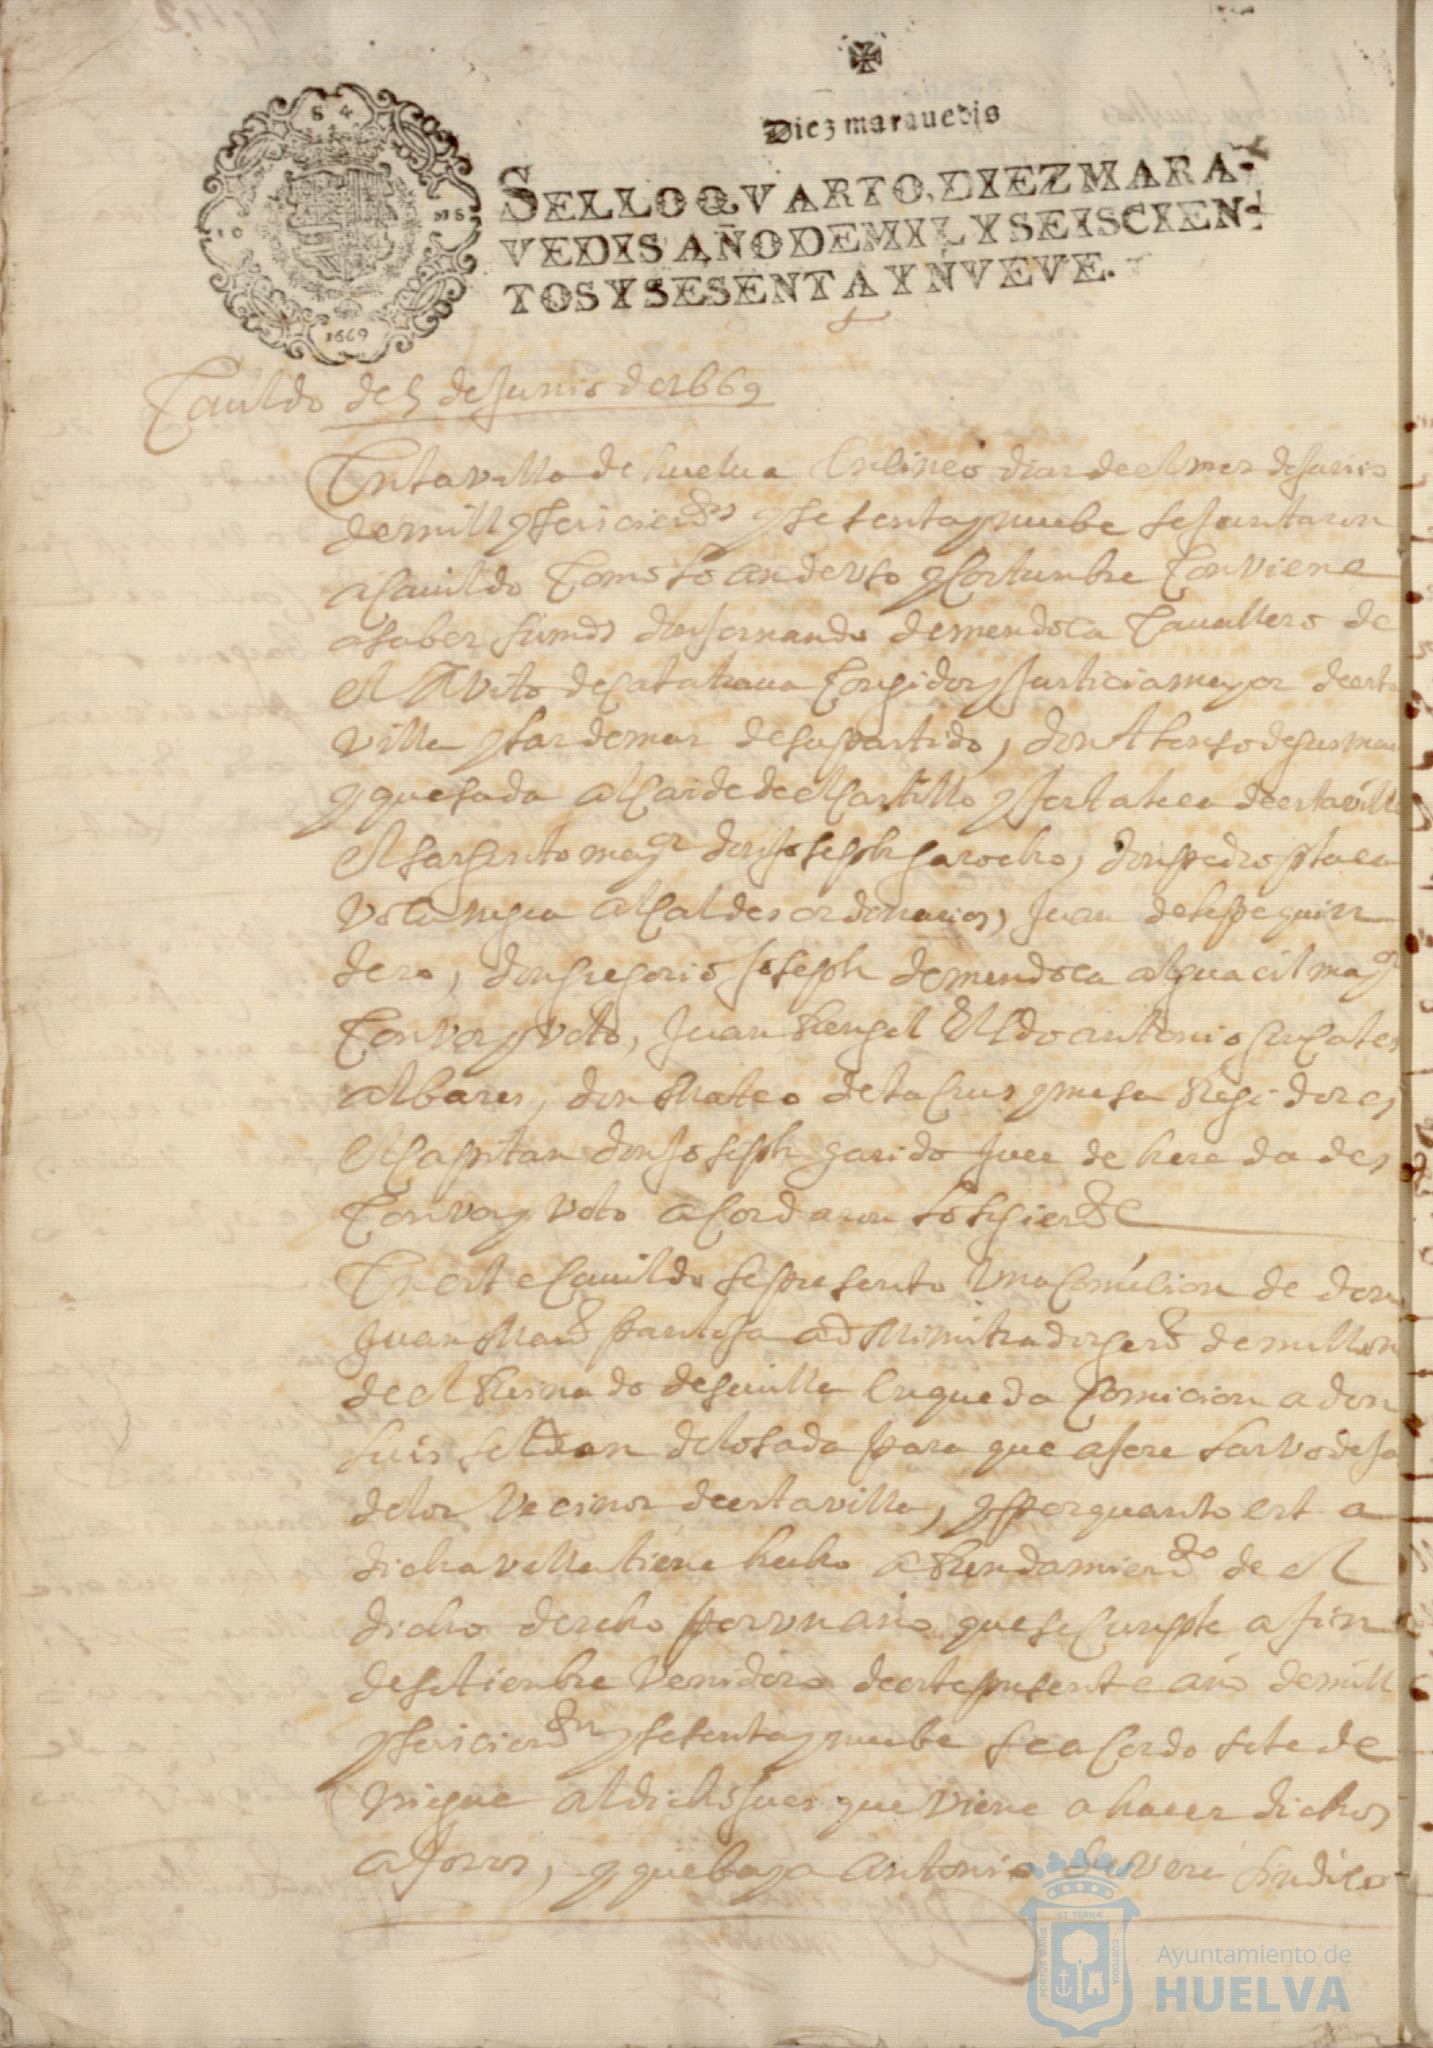 Diez marauedis
SELLO QVARTO, DIEZ MARA-
VEDIS AÑO DE MIL Y SEISCIEN-
TOS Y SESENTA Y NVEVE.
S 4
1669
Cauildo de 5 de Junio de 1669
En la villa de huelua En cinco dias de el mes de Junio
de mill y seiscientos y sesenta y nuebe se juntaron
a Cauildo Como lo an de vso y Costumbre Conviene
a saber su md don fernando de mendoça Cauallero de
el Avito de Calatraua Corregidor y Justicia mayor de esta
villa y de su partido, don Alonso de gusman
y quesada alcaide de el Castillo y fortaleça de esta villa
el sargento mayr don Joseph garocho, don pedro
alcaldes ordinarios, Juan de
dero, don gregorio Joseph de mendoca alguacil magr
Con vos y voto, Juan Rengel El Ldo antonio
albares, don Mateo de la Crus y mesa Regidores
el Capitan don Joseph garido Jues de heredades
Con vos y voto acordaron lo sigiente
En este Cauildo se presento vna Comision de don
Juan pantoja administrador de millon
de el Reinado de seuilla en que da Comicion a don
luis de losada para que afore
de los vecinos de esta villa, y por quanto esta
dicha villa tiene hecho aRendamiento de el
dicho derecho por vn año que se Cunple a fin
de setienbre venidero de este presente año de mill
y seiscientos y sesenta y nuebe se acordo se le de
al dicho jues que viene a hacer dichos
aforos, y que baya antonio sindico
Ayuntamiento de
HUELVA